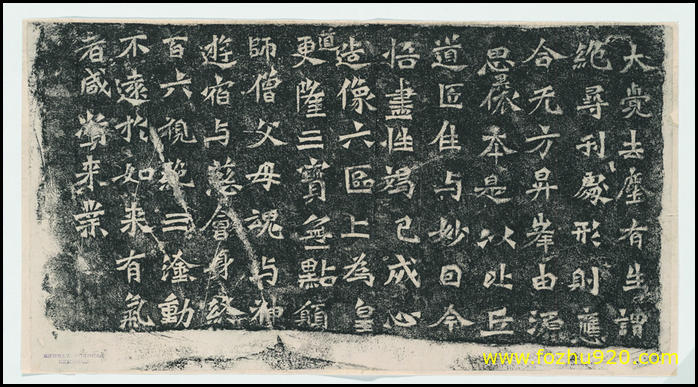 大覺去塵有生謂
絕尋刹處形則應
合无方昇峯由源
思果依本是以比丘
道匠住与妙因今
悟盡性竭己成心
造像六區上為皇
道更隆三寶無點願
師僧父母魂与神
遊宿与慈會身終
百六視絕三塗動
不遠於如来有氣
者咸資来業
www.fozhu920.com